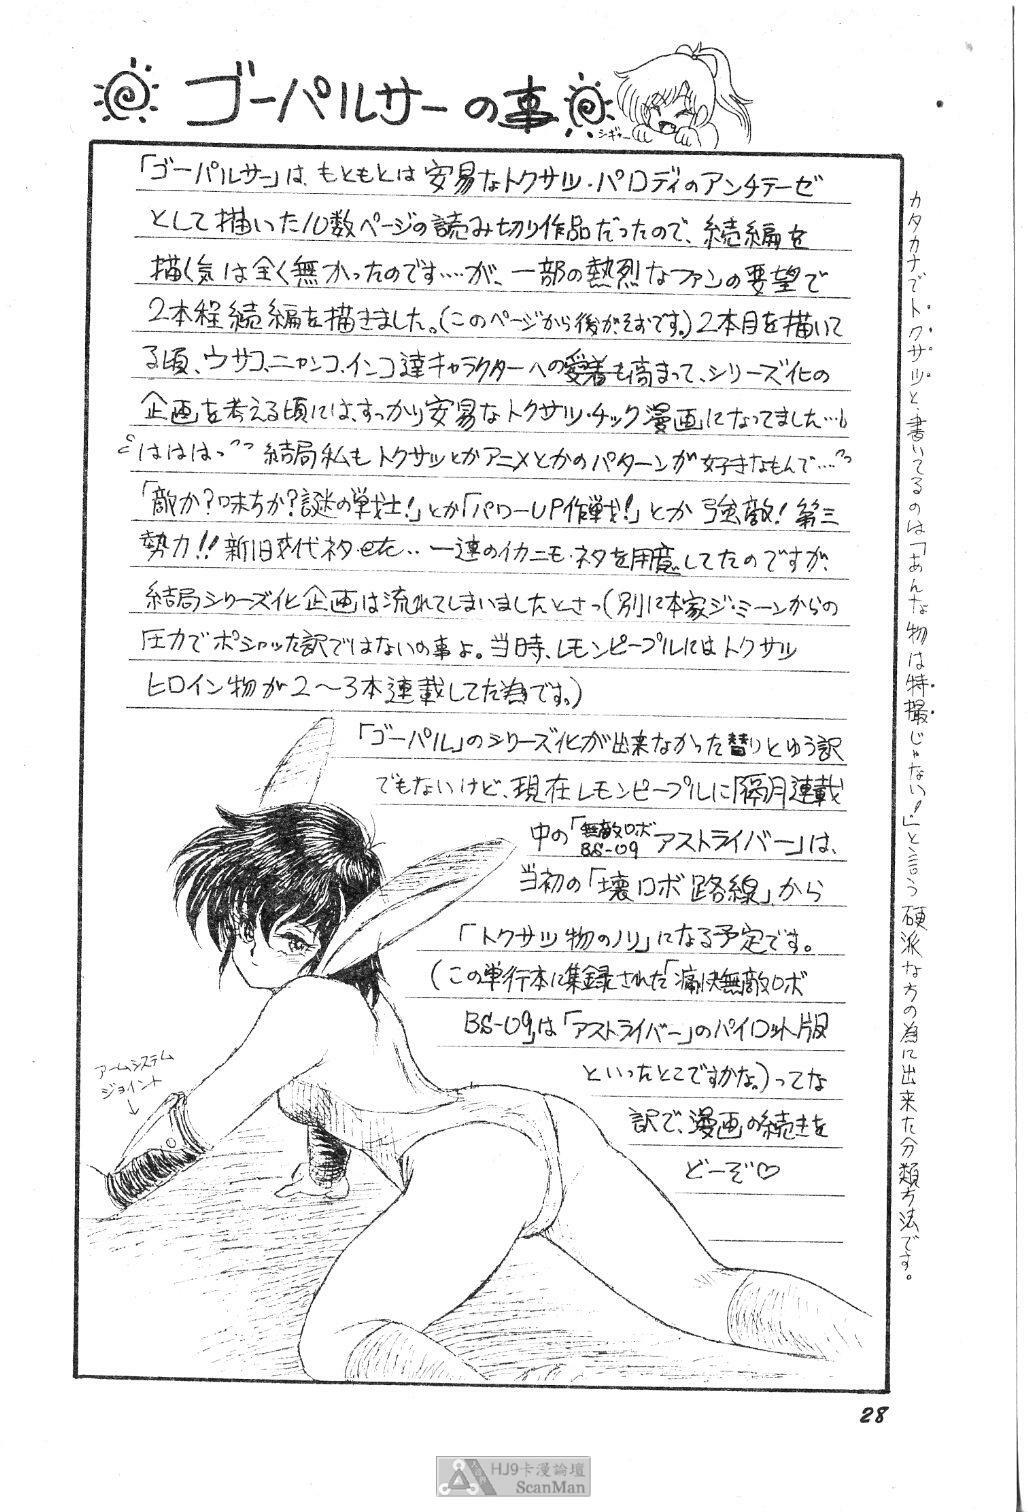 ゴーパルサーの事
シギャー
「ゴーパルサー」は、もともとは安易なトクサツ・パロディのアンチテーゼ
として描いた10数ページの読み切り作品だったので、続編を
描く気は全く無かったのです……が、一部の熱烈なファンの要望で
2本程続編を描きました。(このページから後がそおです。)2本目を描いて
る頃、ウサコ、ニャンコ、インコ達キャラクターへの愛着も高まって、シリーズ化の
企画を考える頃には、すっかり安易なトクサツ・チック漫画になってました…
はははっ 結局私もトクサツとかアニメとかのパターンが好きなもんで……
「敵か?味ちか?謎の戦士!」とか「パワーUP作戦!」とか強敵!第三
勢力!!新旧交代ネタ・etc.. 一連のイカニモ・ネタを用意してたのですが、
結局シリーズ化企画は流れてしまいましたとさっ(別に本家ジ・ミーンからの
圧力でポシャッた訳ではないの事よ。当時、レモンピープルにはトクサツ
ヒロイン物が2〜3本連載してた為です。)
「ゴーパル」のシリーズ化が出来なかった替りとゆう訳
でもないけど、現在レモンピープルに隔月連載
中の「無敵ロボBS-09アストライバー」は、
当初の「壊ロボ路線」から
「トクサツ物のノリ」になる予定です。
(この単行本に集録された「痛快無敵ロボ
BS-09」は「アストライバー」のパイロット版
といったとこですかな。)ってな
訳で、漫画の続きを
どーぞ♡
アームシステム
ジョイント
↓
カタカナでトクサツと書いてるのは「あんな物は特撮じゃない!」と言う硬派な方の為に出来た分類方法です。
28
HJ9卡漫論壇
ScanMan